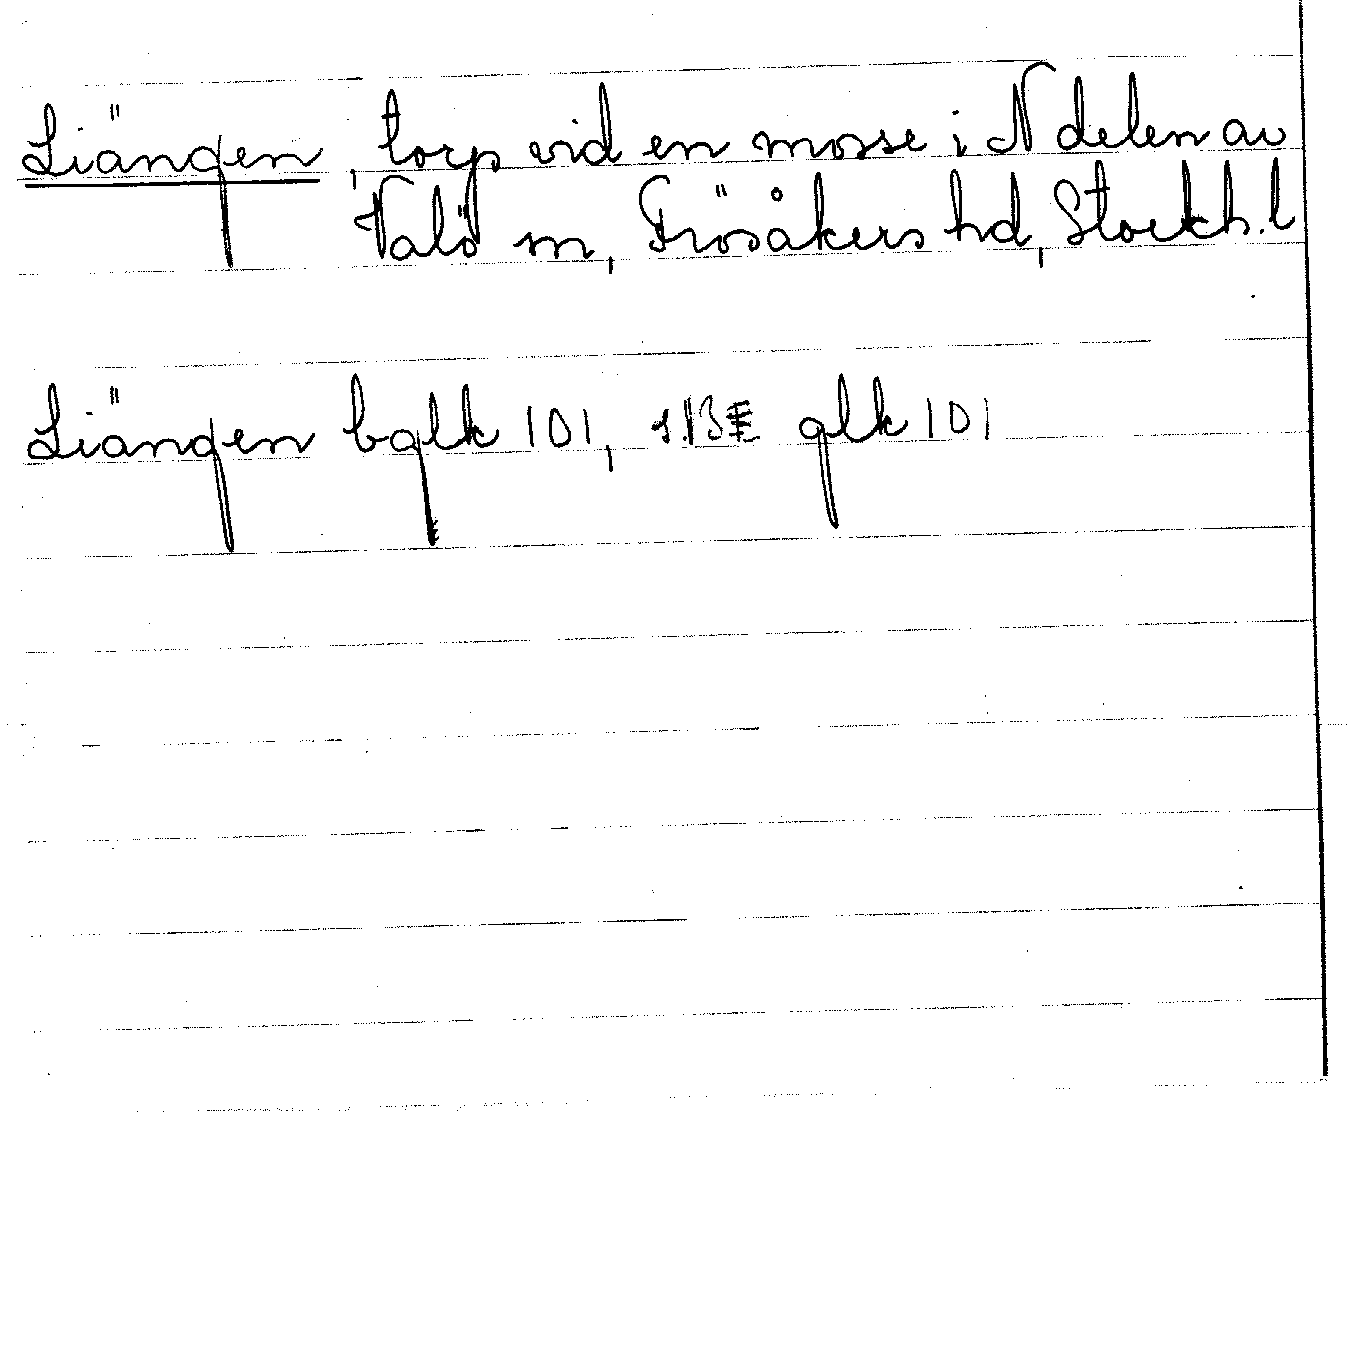 Liängen, torp vid en mosse i N delen av
Valö sn, Frösåkers hd, Stockh. l
Liängen bglk 101, glk 101